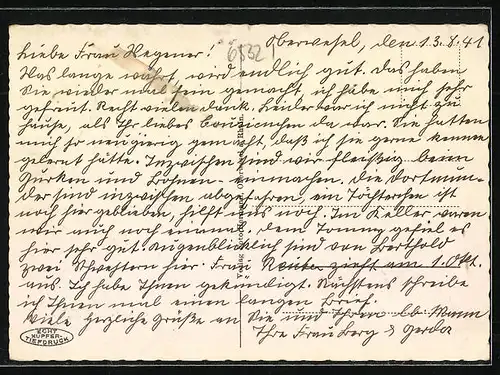 Oberwesel, den 13.8.41
6832
Liebe Frau Wegener!
Was lange währt, wird endlich gut. Das haben
Sie wieder mal fein gemacht, ich habe mich sehr
gefreut. Recht vielen Dank. Leider war ich nicht zu
hause, als Ihr liebes da war. Sie hatten
mich so neugierig gemacht, daß ich sie gerne kennen
gelernt hätte. Inzwischen sind wir fleißig beim
Gurken und Bohnen einmachen. Die Dortmun-
der sind inzwischen abgefahren, ein Töchterchen ist
noch hier geblieben, hilft uns noch. Im Keller waren
wir auch noch einmal, dem Tommy gefiel es
hier sehr gut. Augenblicklich sind von Berthold
zwei Schwestern hier. Frau zieht am 1. Okt.
aus. Ich habe Ihnen gekündigt. Nächstens schreibe
ich Ihnen mal einen langen Brief.
Viele herzliche Grüße an Sie und Ihren lb Mann
Ihre Frau Berg & Gerda
ECHT
KUPFER-
TIEFDRUCK